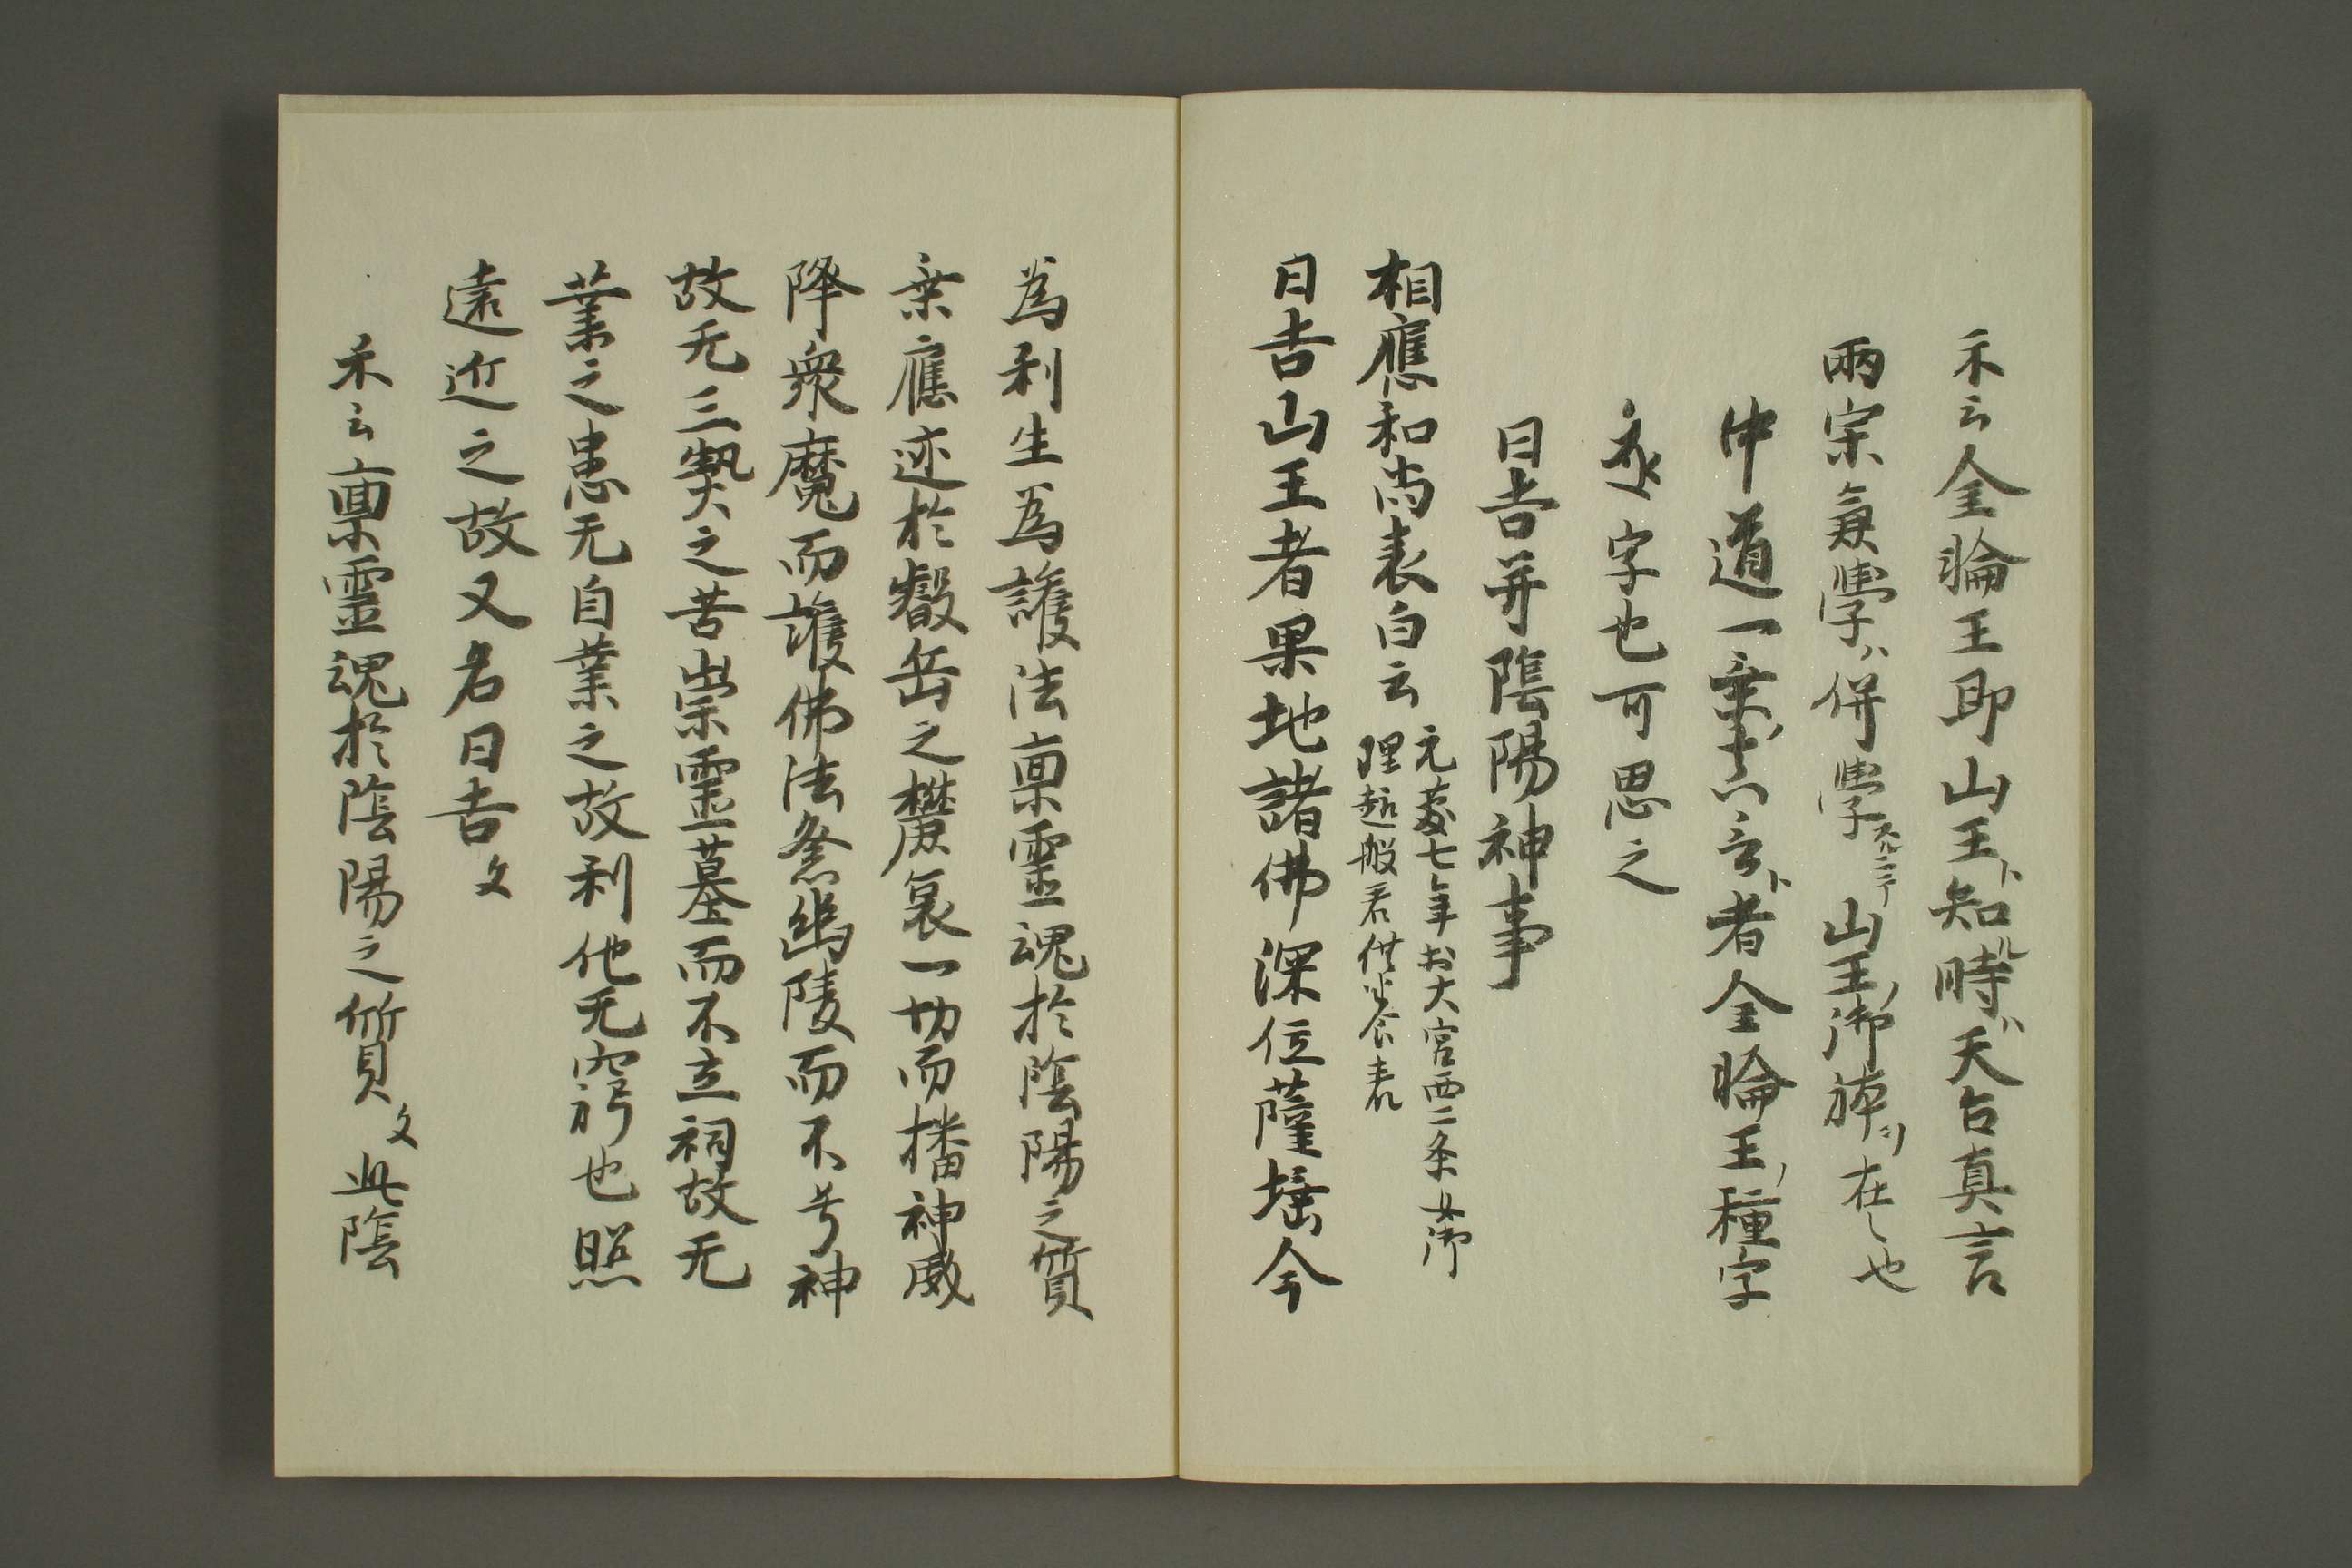 示云金輪王即山王ト知ル時ハ天台真言
兩宗兼學ハ併學 山王ノ御在々也
中道一乗ト云ト者金輪王ノ種字
字也可思之
日吉并陰陽神事
相應和尚表白云
元慶七年於大宮西二条女御
理趣般若供養表
日吉山王者果地諸佛深位薩埵今
為利生為護法稟靈魂於陰陽之質
垂應迹於叡岳之麓裏一切而播神威
降衆魔而護佛法祭幽陵而不号神
故无三熱之苦崇靈墓而不立祠故无
業之患无自業之故利他无窮也照
遠近之故又名日吉文
示云稟靈魂於陰陽之質文此陰